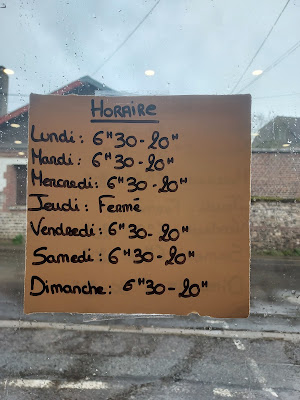 HORAIRE
Lundi: 6H30-20H
Mardi: 6H30-20H
Mercredi: 6H30-20H
Jeudi: Fermé
Vendredi: 6H30-20H
Samedi: 6H30-20H
Dimanche: 6H30-20H